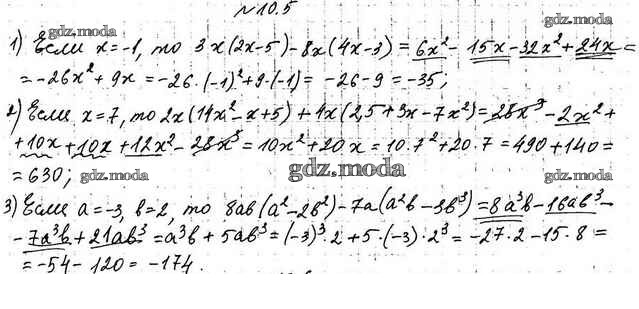 №10.5
gdz.moda gdz.moda
1) Если x=-1, то 3x(2x-5)-8x(4x-3)=6x²-15x-32x²+24x=
=-26x²+9x=-26·(-1)²+9·(-1)=-26-9=-35;
gdz.moda gdz.moda
2) Если x=7, то 2x(14x²-x+5)+4x(2,5+3x-7x²)=28x³-2x²+
+10x+10x+12x²-28x³=10x²+20x=10·7²+20·7=490+140=
gdz.moda
=630; gdz.moda gdz.moda
3) Если a=-3, b=2, то 8ab(a²-2b²)-7a(a²b-3b³)=8a³b-16ab³-
-7a³b+21ab³=a³b+5ab³=(-3)³·2+5·(-3)·2³=-27·2-15·8=
=-54-120=-174.
gdz.moda gdz.moda